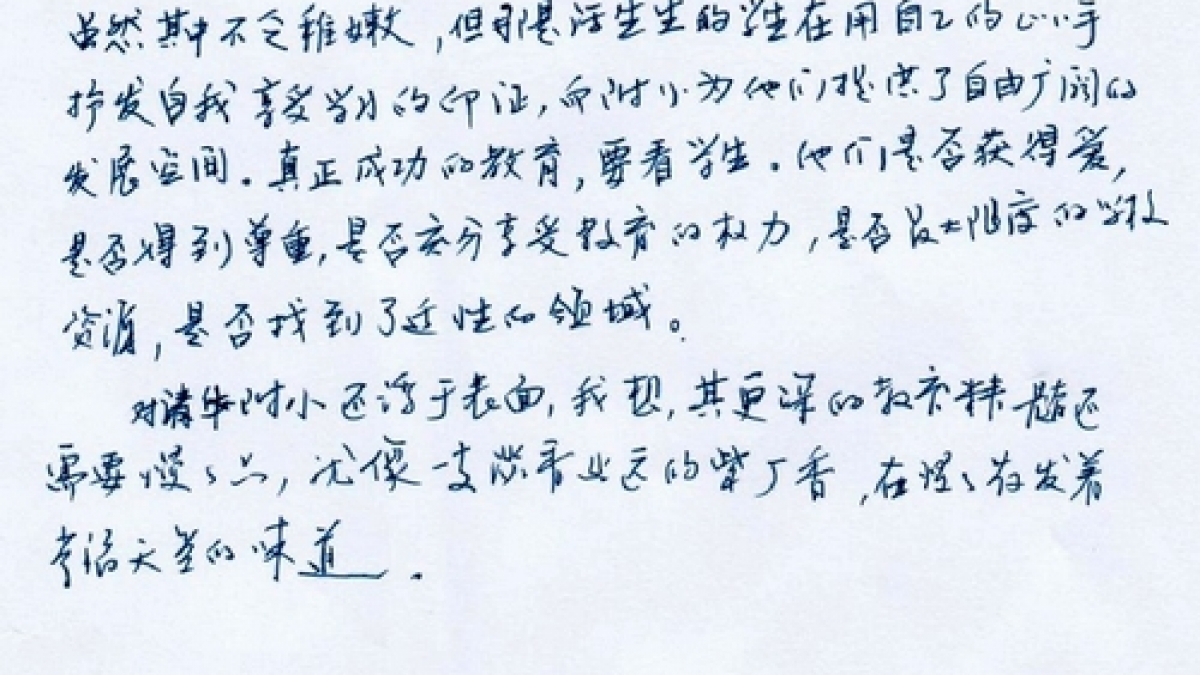 虽然其中不乏稚嫩,但那是活生生的学生在用自己的心、手
抒发自我享受学习的印证,而附小为他们提供了自由广阔的
发展空间。真正成功的教育,要看学生。他们是否获得爱,
是否得到尊重,是否充分享受教育的权力,是否最大限度的学校
资源,是否找到了近性的领域。
对清华附小还浮于表面,我想,其更深的教育精髓还
需要慢慢品,尤像一支悠香悠远的紫丁香,在慢慢散发着
幸福天堂的味道.